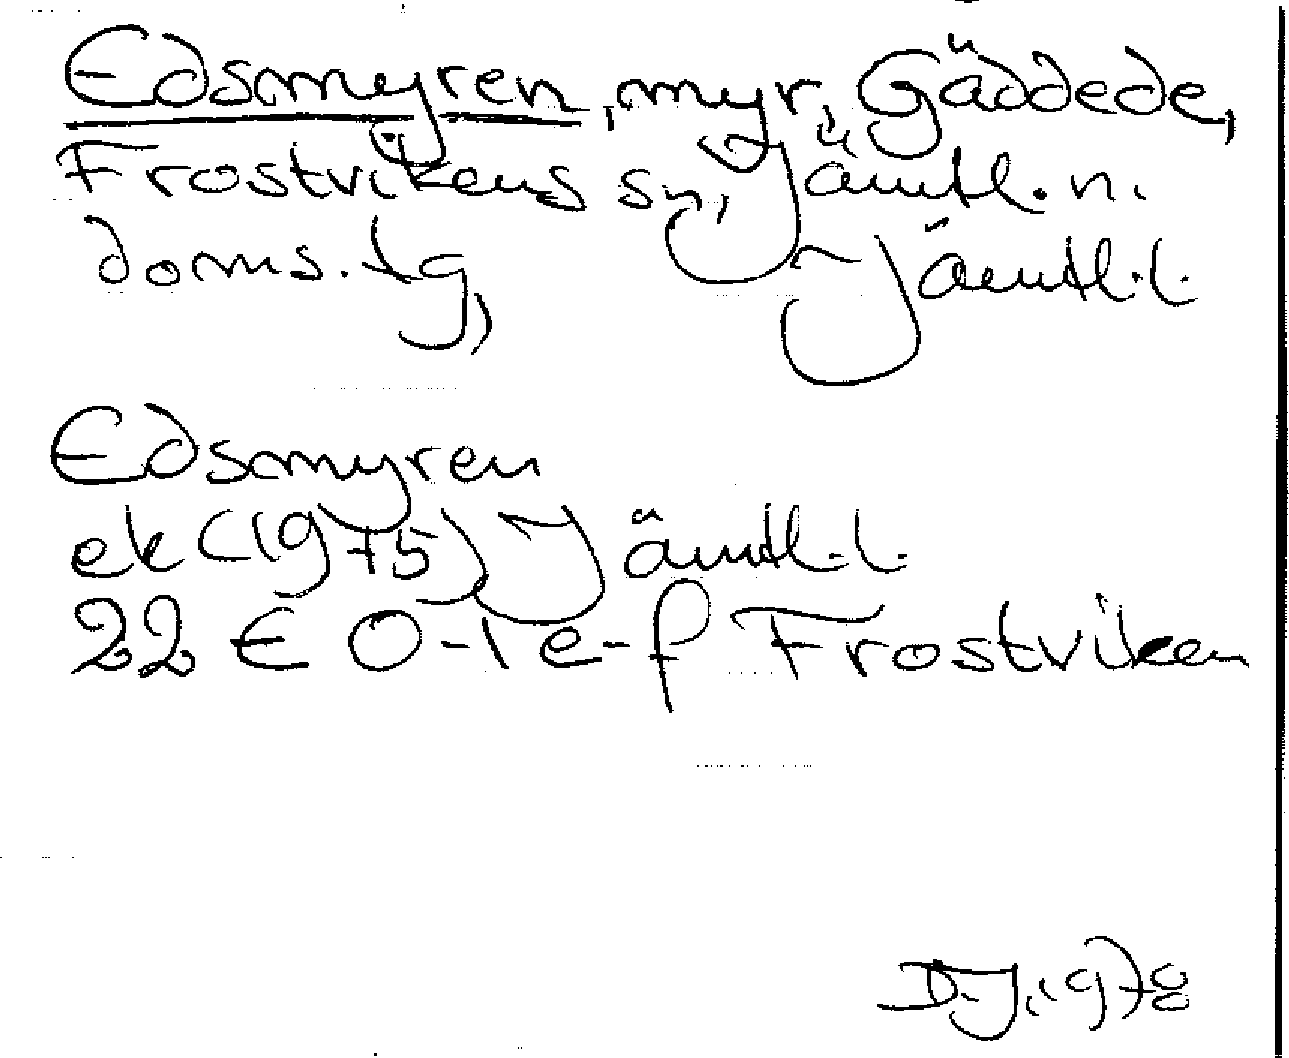 Edsmyren, myr, Gäddede,
Frostvikens sn, Jämtl. n.
doms. lg, Jämtl. l.
Edsmyren
ek (1975) Jämtl. l.
22 E 0-1 e-f Frostviken
D.J. 1978